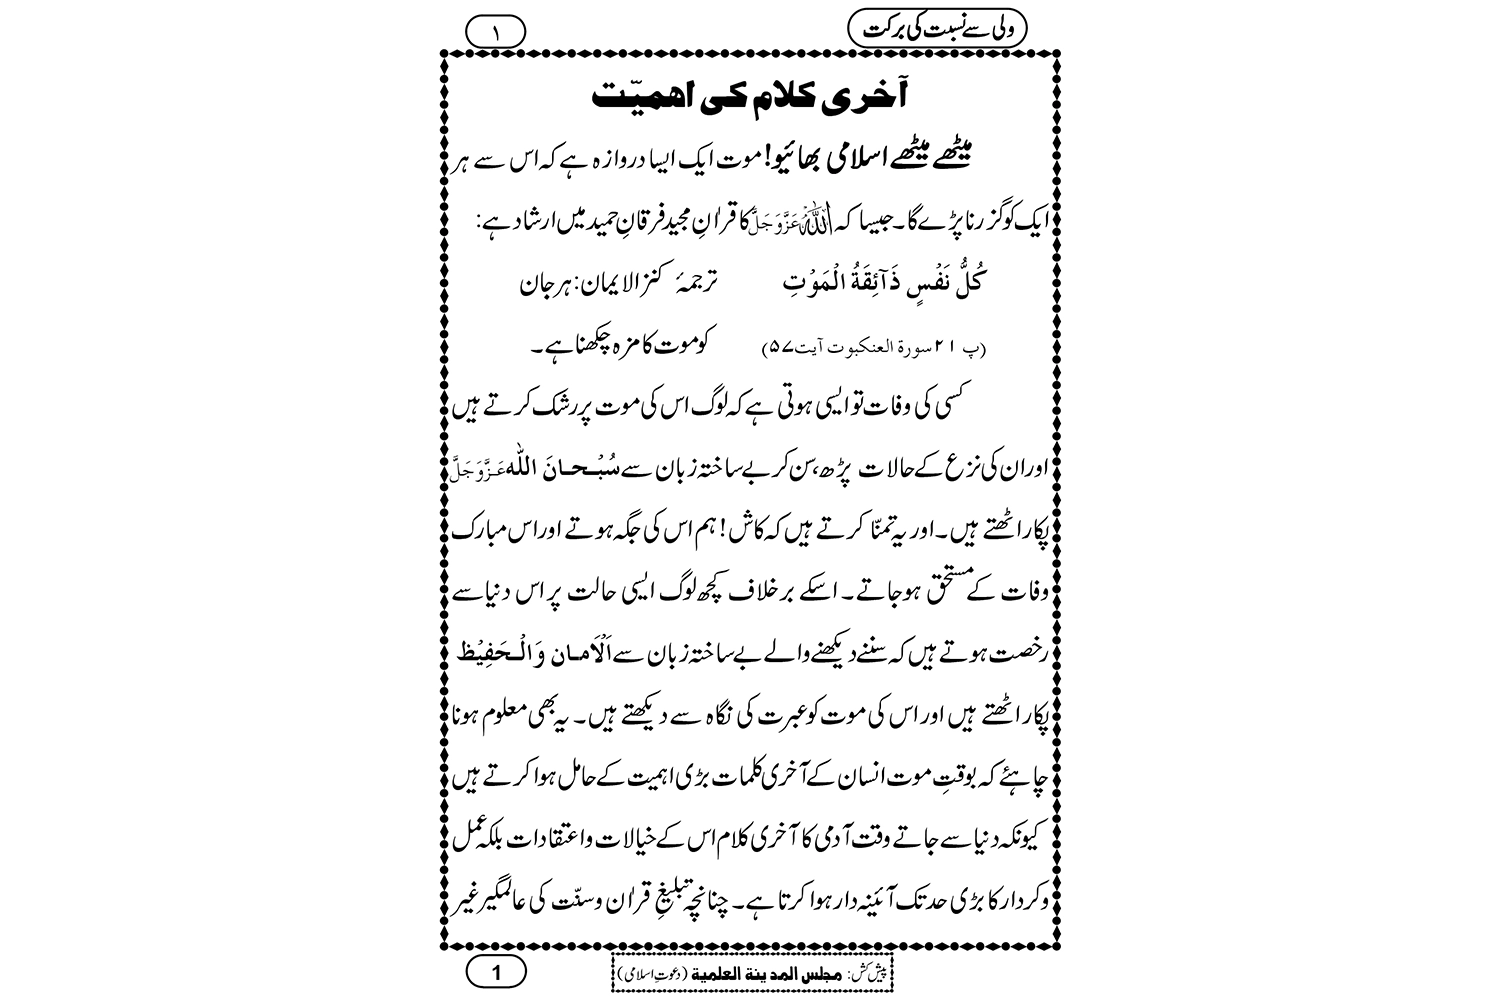 ولی سے نسبت کی برکت
١
آخری کلام کی اھمیّت
میٹھے میٹھے اسلامی بھائیو! موت ایک ایسا دروازہ ہے کہ اس سے ہر
ایک کو گزرنا پڑے گا۔ جیسا کہ اللہ عَزَّوَجَلَّ کا قراٰنِ مجید فرقانِ حمید میں ارشاد ہے:
کُلُّ نَفْسٍ ذَآئِقَةُ الْمَوْتِ ترجمۂ کنزالایمان: ہر جان
(پ ٢١ سورة العنکبوت آیت ٥٧) کو موت کا مزہ چکھنا ہے۔
کسی کی وفات تو ایسی ہوتی ہے کہ لوگ اس کی موت پر رشک کرتے ہیں
اور ان کی نزع کے حالات پڑھ، سن کر بے ساختہ زبان سے سُبْحانَ اللّٰه عَزَّوَجَلَّ
پکار اٹھتے ہیں۔ اور یہ تمنّا کرتے ہیں کہ کاش! ہم اس کی جگہ ہوتے اور اس مبارک
وفات کے مستحق ہوجاتے۔ اسکے برخلاف کچھ لوگ ایسی حالت پر اس دنیا سے
رخصت ہوتے ہیں کہ سننے دیکھنے والے بے ساختہ زبان سے اَلْاَمان وَالْحَفِیْظ
پکار اٹھتے ہیں اور اس کی موت کو عبرت کی نگاہ سے دیکھتے ہیں۔ یہ بھی معلوم ہونا
چاہئے کہ بوقتِ موت انسان کے آخری کلمات بڑی اہمیت کے حامل ہوا کرتے ہیں
کیونکہ دنیا سے جاتے وقت آدمی کا آخری کلام اس کے خیالات و اعتقادات بلکہ عمل
و کردار کا بڑی حد تک آئینہ دار ہوا کرتا ہے۔ چنانچہ تبلیغِ قراٰن و سنّت کی عالمگیر غیر
پیش کش: مجلس المدینة العلمیة (دعوتِ اسلامی)
1